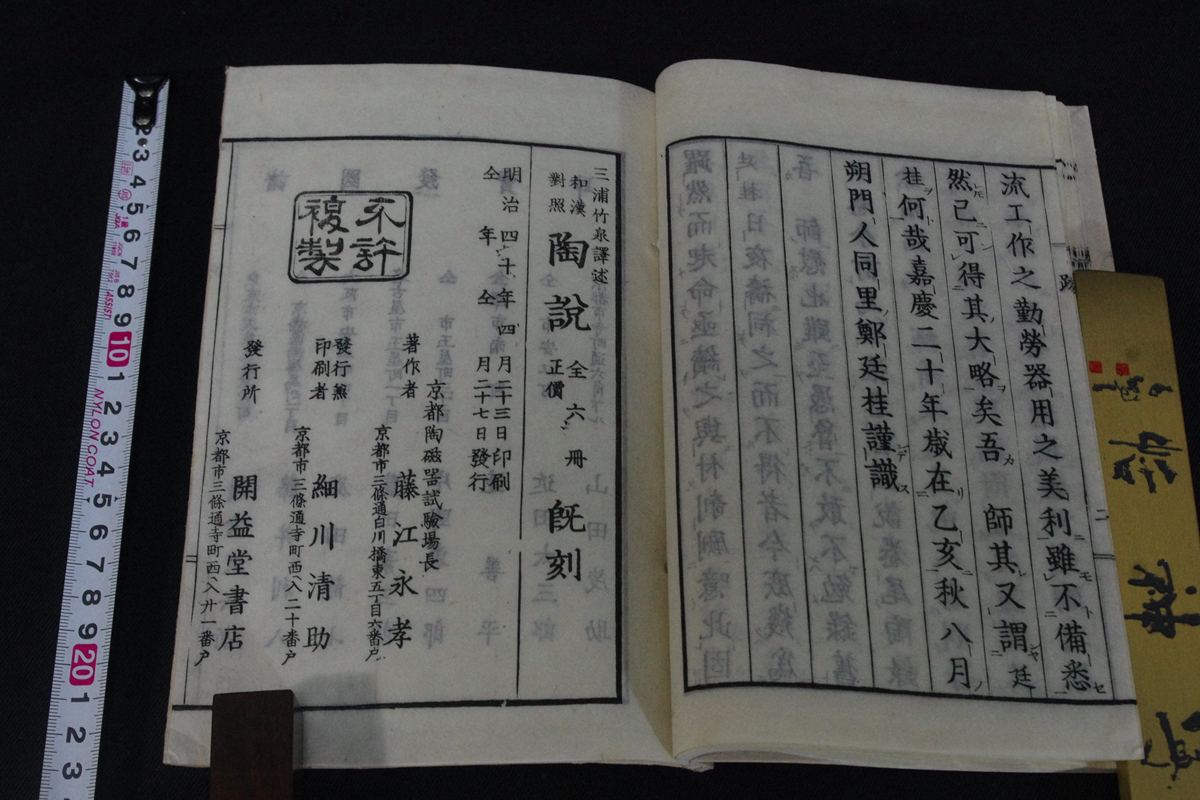 流工作之勤勞器用之美利雖不備悉
然已可得其大略矣吾 師其又謂廷
桂何哉嘉慶二十年歲在乙亥秋八月
朔門人同里鄭廷桂謹識
三浦竹泉譯述
和漢對照 陶說 全六冊 正價 旣刻
明治四十年四月二十三日印刷
仝年仝月二十七日發行
不許複製
京都陶磁器試驗場長
著作者 藤江永孝
京都市三條通白川橋東五丁目六番戶
發行兼印刷者 細川清助
京都市三條通寺町西八二十番戶
發行所 開益堂書店
京都市三條通寺町西八廿一番戶
2 3 4 5 6 7 8 9 10 1 2 3 4 5 6 7 8 9 20 1 2 3
NYLON COAT